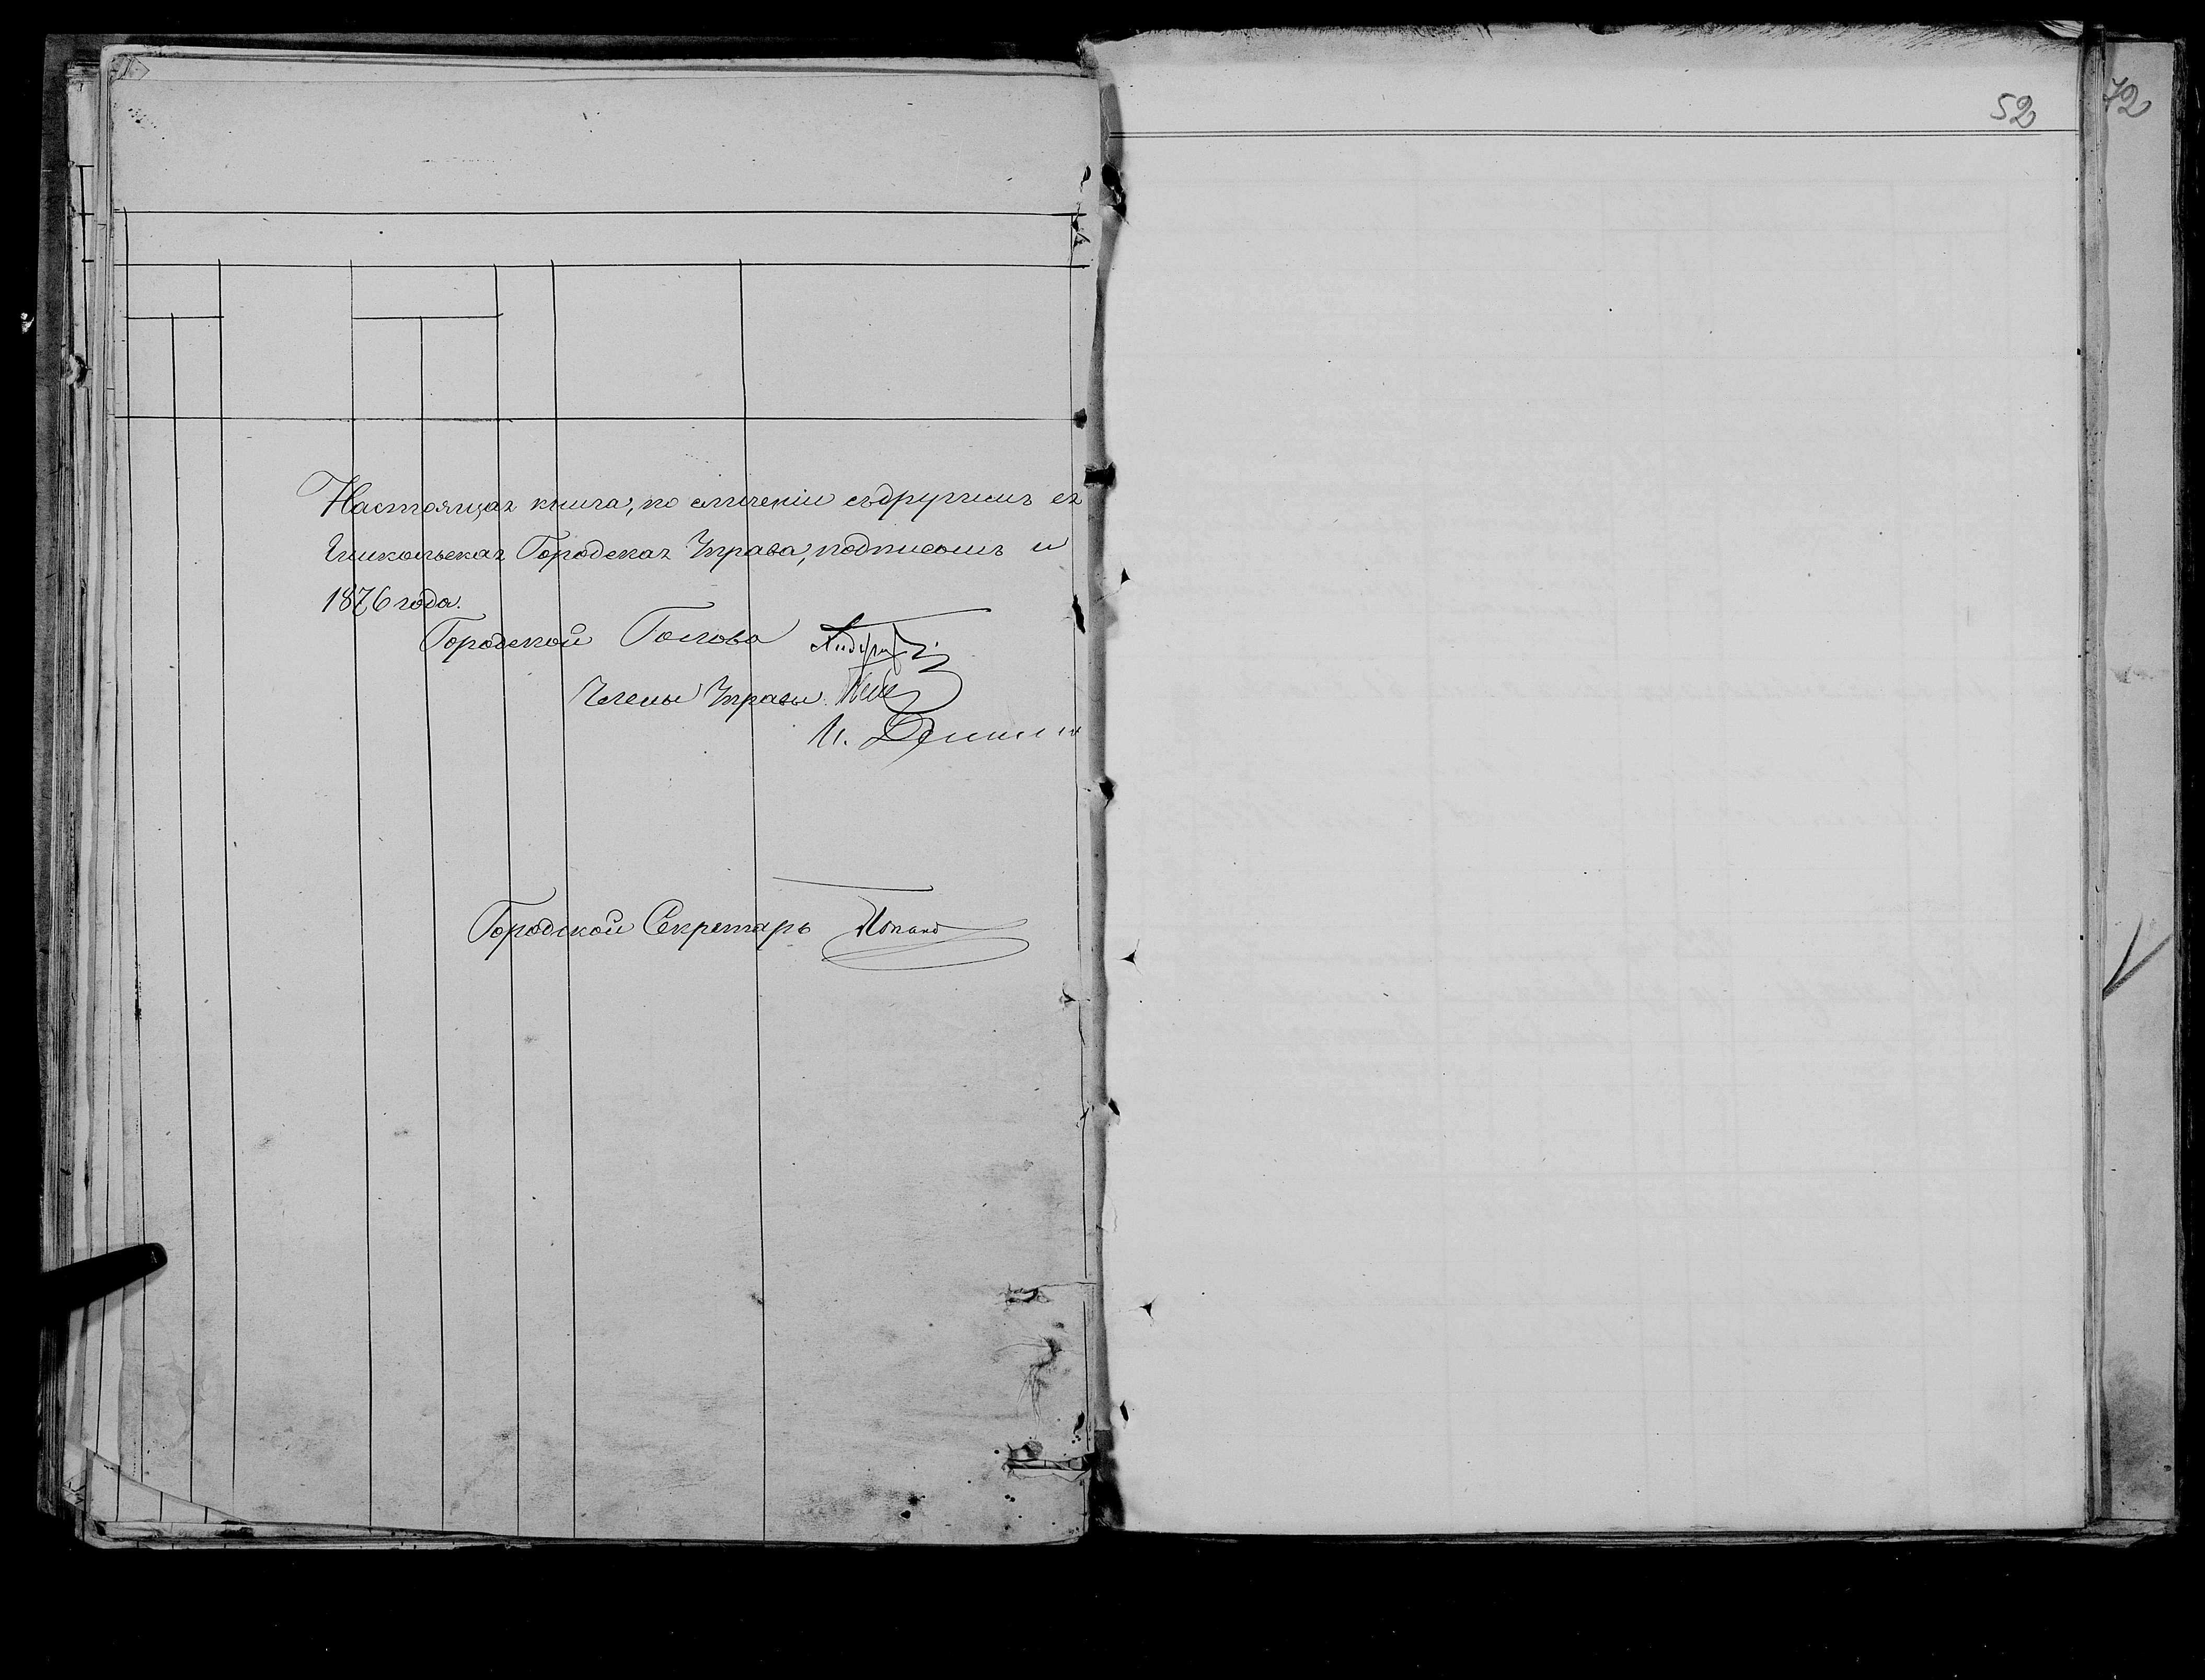 52
72
Настоящая книга, по сличеніи съ другимъ ея
Городская Управа, подписомъ и
1876 года.
Городской Голова
Члены Управы
И.
Городской Секретарь